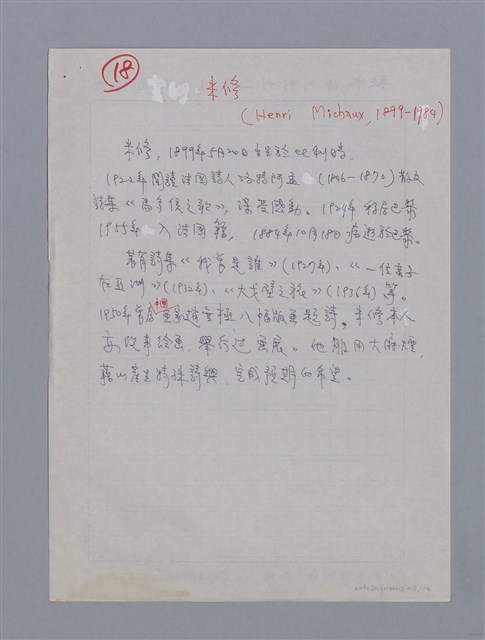 18
米修
(Henri Michaux, 1899-1984)
米修，1899年5月20日生於比利時。
1922年閱讀法國詩人 (1846-1870) 散文
詩集《馬多侯之歌》，深受感動。1924年移居巴黎
1955年入法國籍，1984年10月18日病逝於巴黎。
著有詩集《我曾是誰》(1927年)、《一位蠻子
在亞洲》(1932年)、《大戈壁之旅》(1936年) 等。
1950年曾為中國畫家趙無極八幅版畫題詩。米修本人
亦從事繪畫，舉行過畫展。他服用大麻煙，
藉以產生特殊詩興，完成預期的希望。